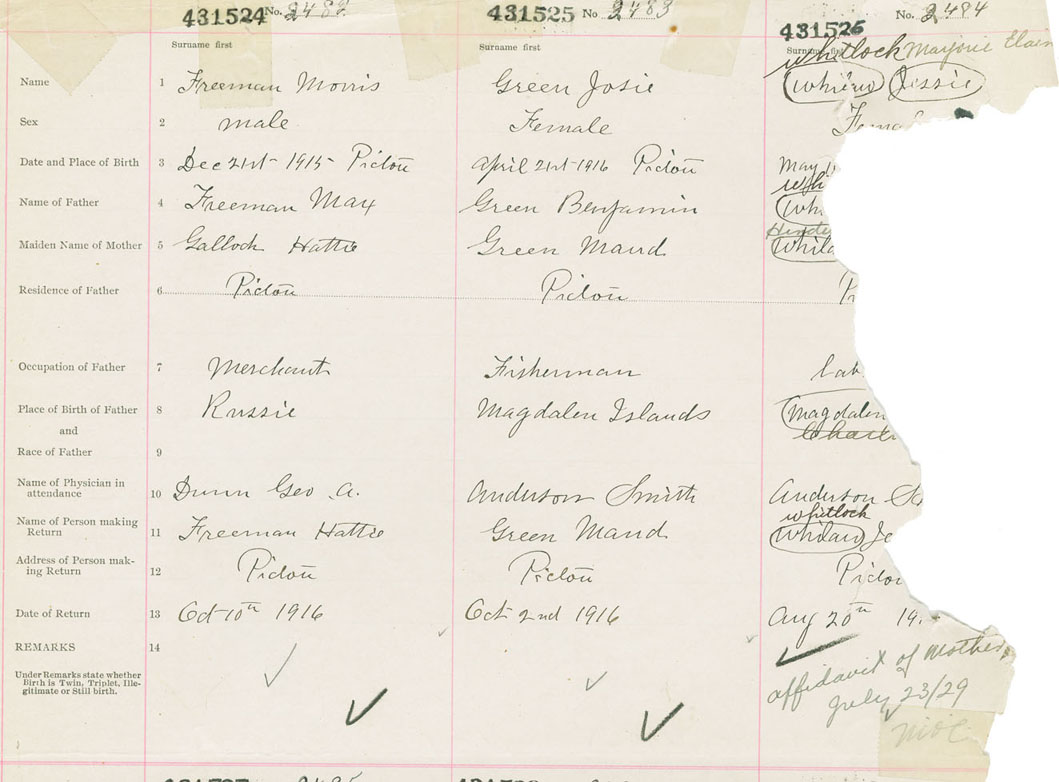 431524 No. 2482 431525 No 2483 431526 No. 2484
Surname first Surname first Surname first
whitlock Marjorie
Name 1 Freeman Morris Green Josie Jessie
Sex 2 male Female Fema
Date and Place of Birth 3 Dec 21st 1915 Pictou April 21st 1916 Pictou May
Name of Father 4 Freeman Max Green Benjamin Wh
Maiden Name of Mother 5 Galloch Hattie Green Maud
Residence of Father 6 Pictou Pictou P
Occupation of Father 7 Merchant Fisherman lab
Place of Birth of Father 8 Russie Magdalen Islands Magdalen
and
Race of Father 9
Name of Physician in
attendance 10 Dunn Geo. A. Anderson Smith Anderson S
Name of Person making whitlock
Return 11 Freeman Hattie Green Maud Je
Address of Person mak-
ing Return 12 Pictou Pictou Picto
Date of Return 13 Oct 10th 1916 Oct 2nd 1916 Aug 20th 19
REMARKS 14
Under Remarks state whether
Birth is Twin, Triplet, Ille-
gitimate or Still birth.
affidavit of Mother
July 23/29
2485